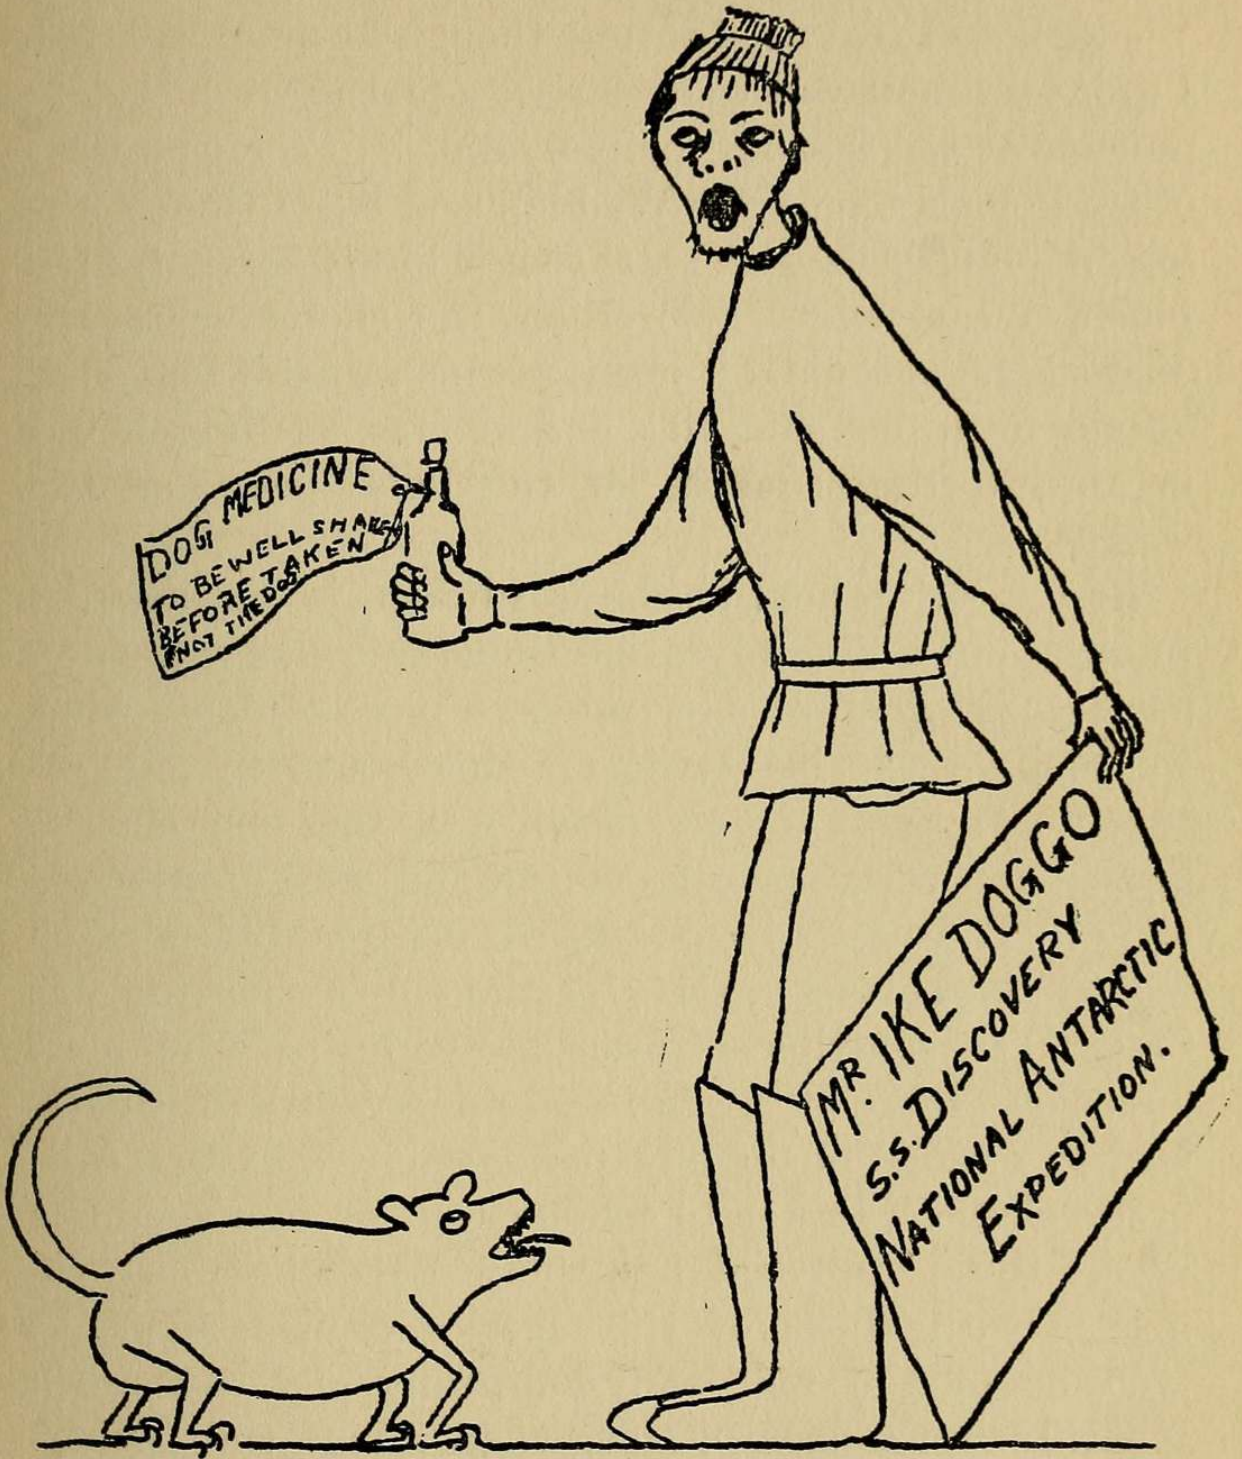 DOG MEDICINE
TO BE WELL SHAKEN
BEFORE TAKEN
NOT THE DOG
MR. IKE DOGGO
S.S. DISCOVERY
NATIONAL ANTARCTIC
EXPEDITION.